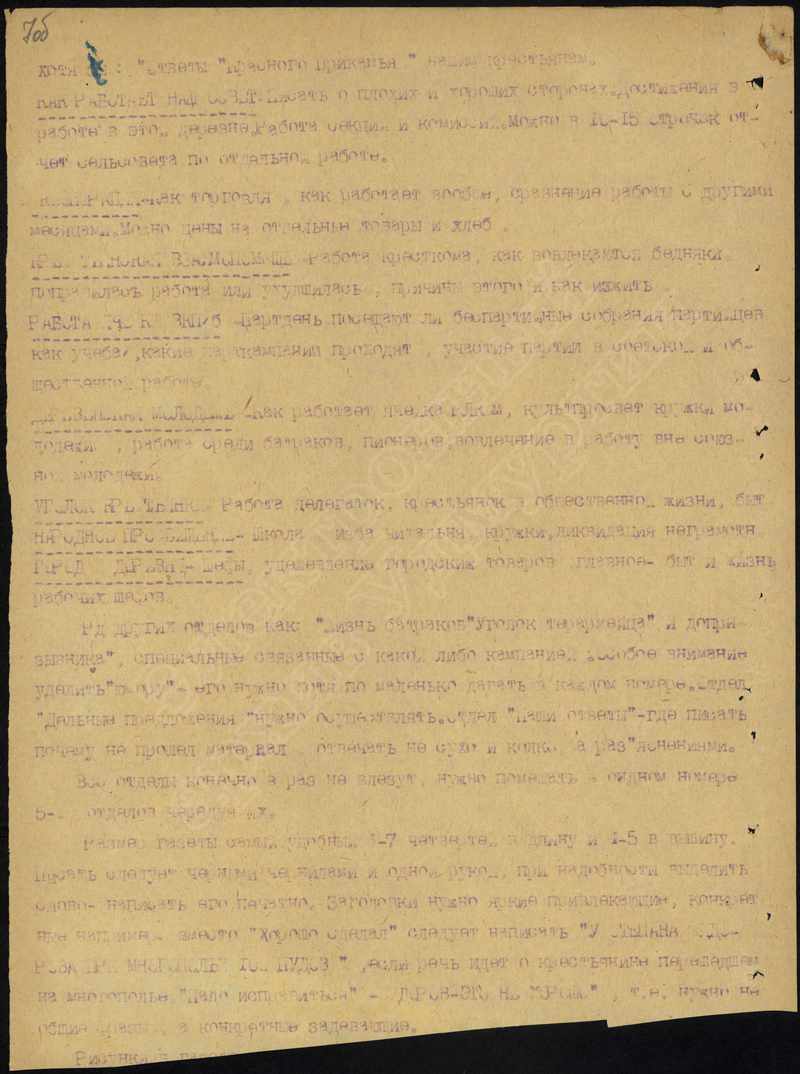 7об
хотя "Ответы "Красного Прикамья " нашим крестьянам.
КАК РАБОТАЕТ НАШ СОВЕТ-Писать о плохих и хороших сторонах.Достижения в
работе в этой деревне.Работа секций и комиссий.Можно в 10-15 строчек от-
чет сельсовета по отдельной работе.
-Как торговля , как работает вообще, сравнение работы с другими
месяцами.Можно цены на отдельные товары и хлеб .
ВЗАИМОПОМОЩЬ -Работа крескома, как вовлекаются бедняки
работа или ухудшилась , причины этого и как изжить
РАБОТА ВКП/б -Партдень посещают ли беспартийные собрания партийцев
как учеба/,какие парткампании проходят , участие партии в советской и об-
щественной работе.
МОЛОДЕЖЬ -Как работает ячейка РЛКСМ, культпросвет кружки мо-
лодежи , работа среди батраков, пионеров,вовлечение в работу вне союз-
ной молодежи.
УГОЛОК КРЕСТЬЯНКИ Работа делегаток, крестьянок в общественной жизни, быт
НАРОДНОЕ ПРОСВЕЩЕНИЕ- Школа изба читальня, кружки,ликвидация неграмотн.
ГОРОД ДЕРЕВНЕ- шефы, удешевление городских товаров главное- быт и жизнь
рабочих шефов.
Ряд других отделов как: "Жизнь батраков"Уголок терармейца" и допри-
зывника", специальные связанные с какой либо кампанией. Особое внимание
уделить"юмору"- его нужно хотя по маленько давать в каждом номере.Отдел
"Дельные предложения "нужно осуществлять.Отдел "Наши ответы"-где писать
почему не прошел материал , отвечать не сухо и колко, а раз"яснениями.
Все отделы конечно в раз не влезут, нужно помещать в одном номере
5- отделов чередуя их.
Размер газеты самый удобный -7 четвертей в длину и 4-5 в ширину.
Писать следует черными чернилами и одной рукой, при надобности выделить
слово- написать его печатно. Заголовки нужно яркие привлекающие, конкрет
ные например вместо "Хорошо сделал" следует написать "У СТЕПАНА
МНОГОПОЛЬЕ ПУДОВ " ,если речь идет о крестьянине перешедшем
на многополье."Надо исправиться" - , т.е. нужно не
общие фразы, а конкретные задевающие.
Рисунки